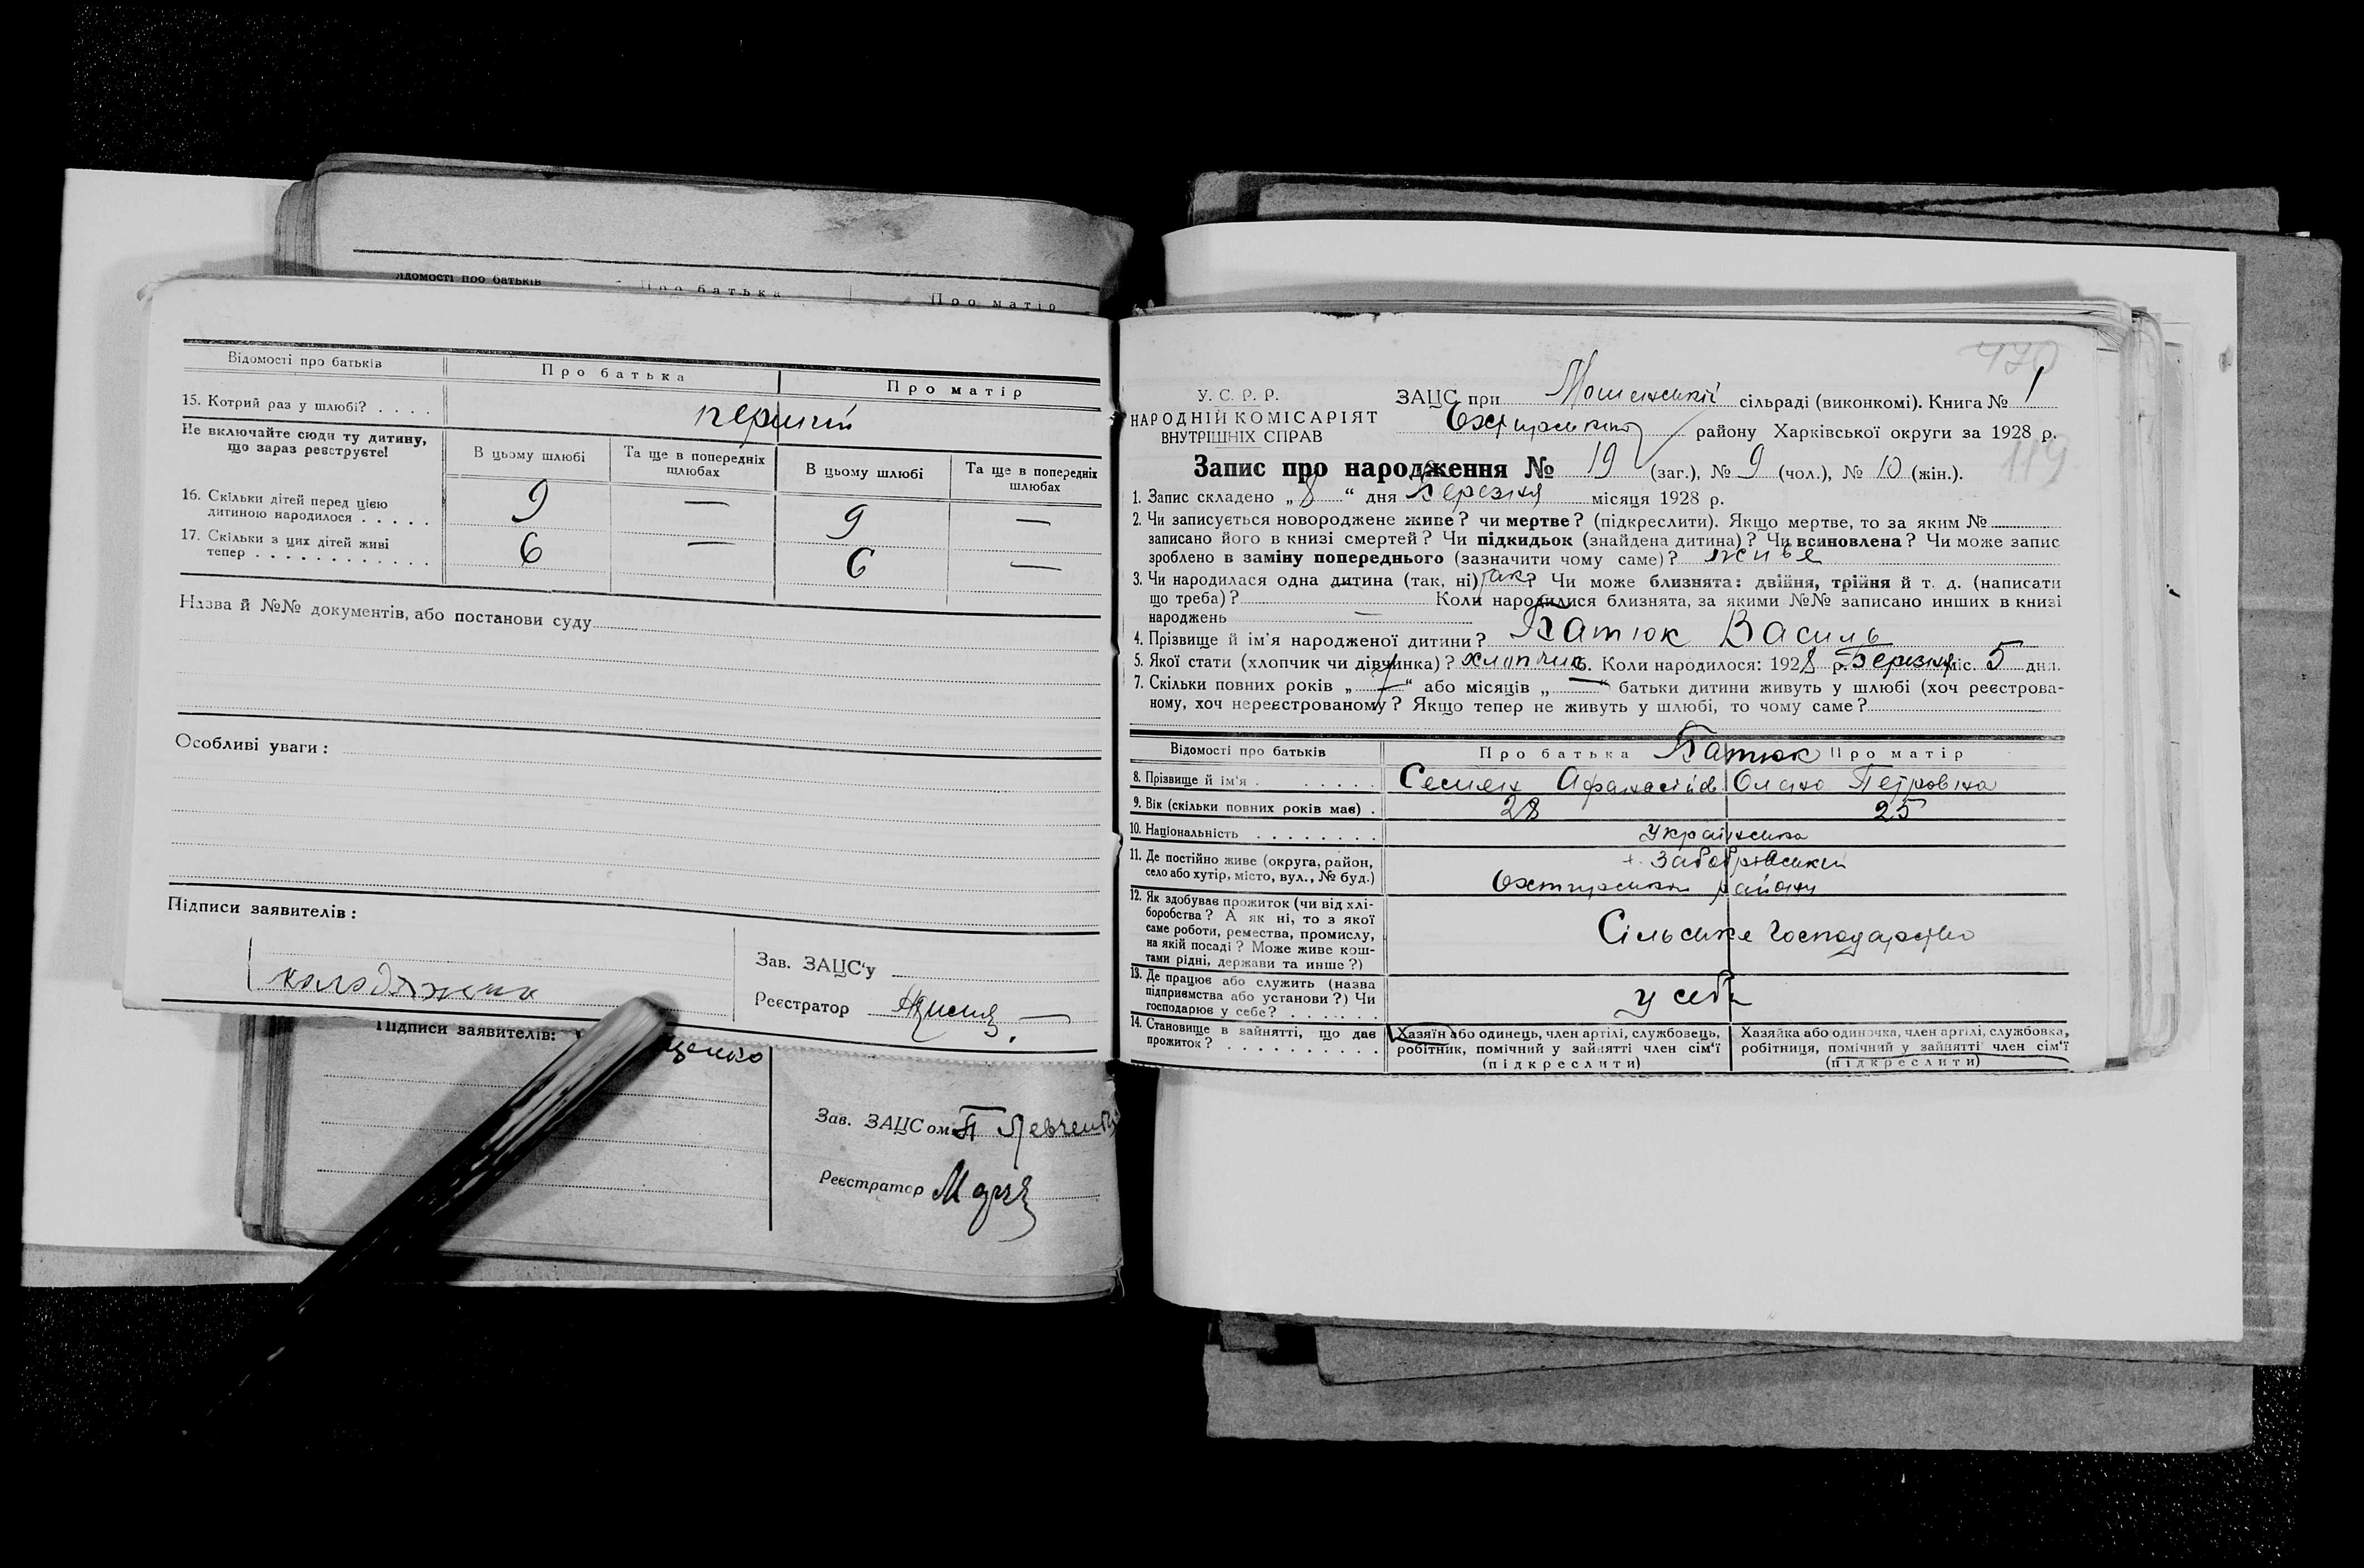 Відомості про батьків
Про батька
Про матір
Відомості про батьків
Про батька
Про матір
15. Котрий раз у шлюбі? . . . .
перший
Не включайте сюди ту дитину,
що зараз реєструєте!
В цьому шлюбі
Та ще в попередніх
шлюбах
В цьому шлюбі
Та ще в попередніх
шлюбах
16. Скільки дітей перед цією
дитиною народилося . . . . .
9 — 9 —
17. Скільки з цих дітей живі
тепер . . . . . . . . . . . .
6 — 6 —
Назва й №№ документів, або постанови суду
Особливі уваги:
Підписи заявителів:
Зав. ЗАЦС'у
Реєстратор
Підписи заявителів:
Зав. ЗАЦСом П Левченко
Реєстратор
470
119
У. С. Р. Р.
НАРОДНІЙ КОМІСАРІЯТ
ВНУТРІШНІХ СПРАВ
ЗАЦС при сільраді (виконкомі). Книга № 1
району Харківської округи за 1928 р.
Запис про народження № 19 (заг.), № 9 (чол.), № 10 (жін.).
1. Запис складено „8“ дня Березня місяця 1928 р.
2. Чи записується новороджене живе? чи мертве? (підкреслити). Якщо мертве, то за яким №
записано його в книзі смертей? Чи підкидьок (знайдена дитина)? Чи всиновлена? Чи може запис
зроблено в заміну попереднього (зазначити чому саме)? живе
3. Чи народилася одна дитина (так, ні) так? Чи може близнята: двійня, трійня й т. д. (написати
що треба)? Коли народилися близнята, за якими №№ записано инших в книзі
народжень —
4. Прізвище й ім'я народженої дитини? Батюк Василь
5. Якої стати (хлопчик чи дівчинка)? хлопчик 6. Коли народилося: 1928 р. Березня міс. 5 дня.
7. Скільки повних років „ “ або місяців „—“ батьки дитини живуть у шлюбі (хоч реєстрова-
ному, хоч нереєстрованому? Якщо тепер не живуть у шлюбі, то чому саме?
Відомості про батьків
Про батька Батюк Про матір
8. Прізвище й ім'я . . . . . .
Семен Афанасіїв Олена Петровна
9. Вік (скільки повних років має) .
28 25
10. Національність . . . . . . . .
Українська
11. Де постійно живе (округа, район,
село або хутір, місто, вул., № буд.)
Охтирський району
12. Як здобуває прожиток (чи від хлі-
боробства? А як ні, то з якої
саме роботи, ремества, промислу,
на якій посаді? Може живе кош-
тами рідні, держави та инше?)
Сільське господарство
13. Де працює або служить (назва
підприємства або установи?) Чи
господарює у себе? . . . . . . .
у себе
14. Становище в зайнятті, що дає
прожиток? . . . . . . . . . .
Хазяїн або одинець, член артілі, службовець,
робітник, помічний у зайнятті член сім'ї
(підкреслити)
Хазяйка або одиночка, член артілі, службовка,
робітниця, помічний у зайнятті член сім'ї
(підкреслити)